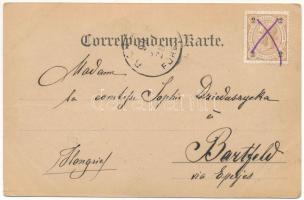 Correspondenz-Karte.
2 2
Madame
la comtesse Sophie Dzieduszycka
à
Bartfeld
(Hongrie)
via Eperjes